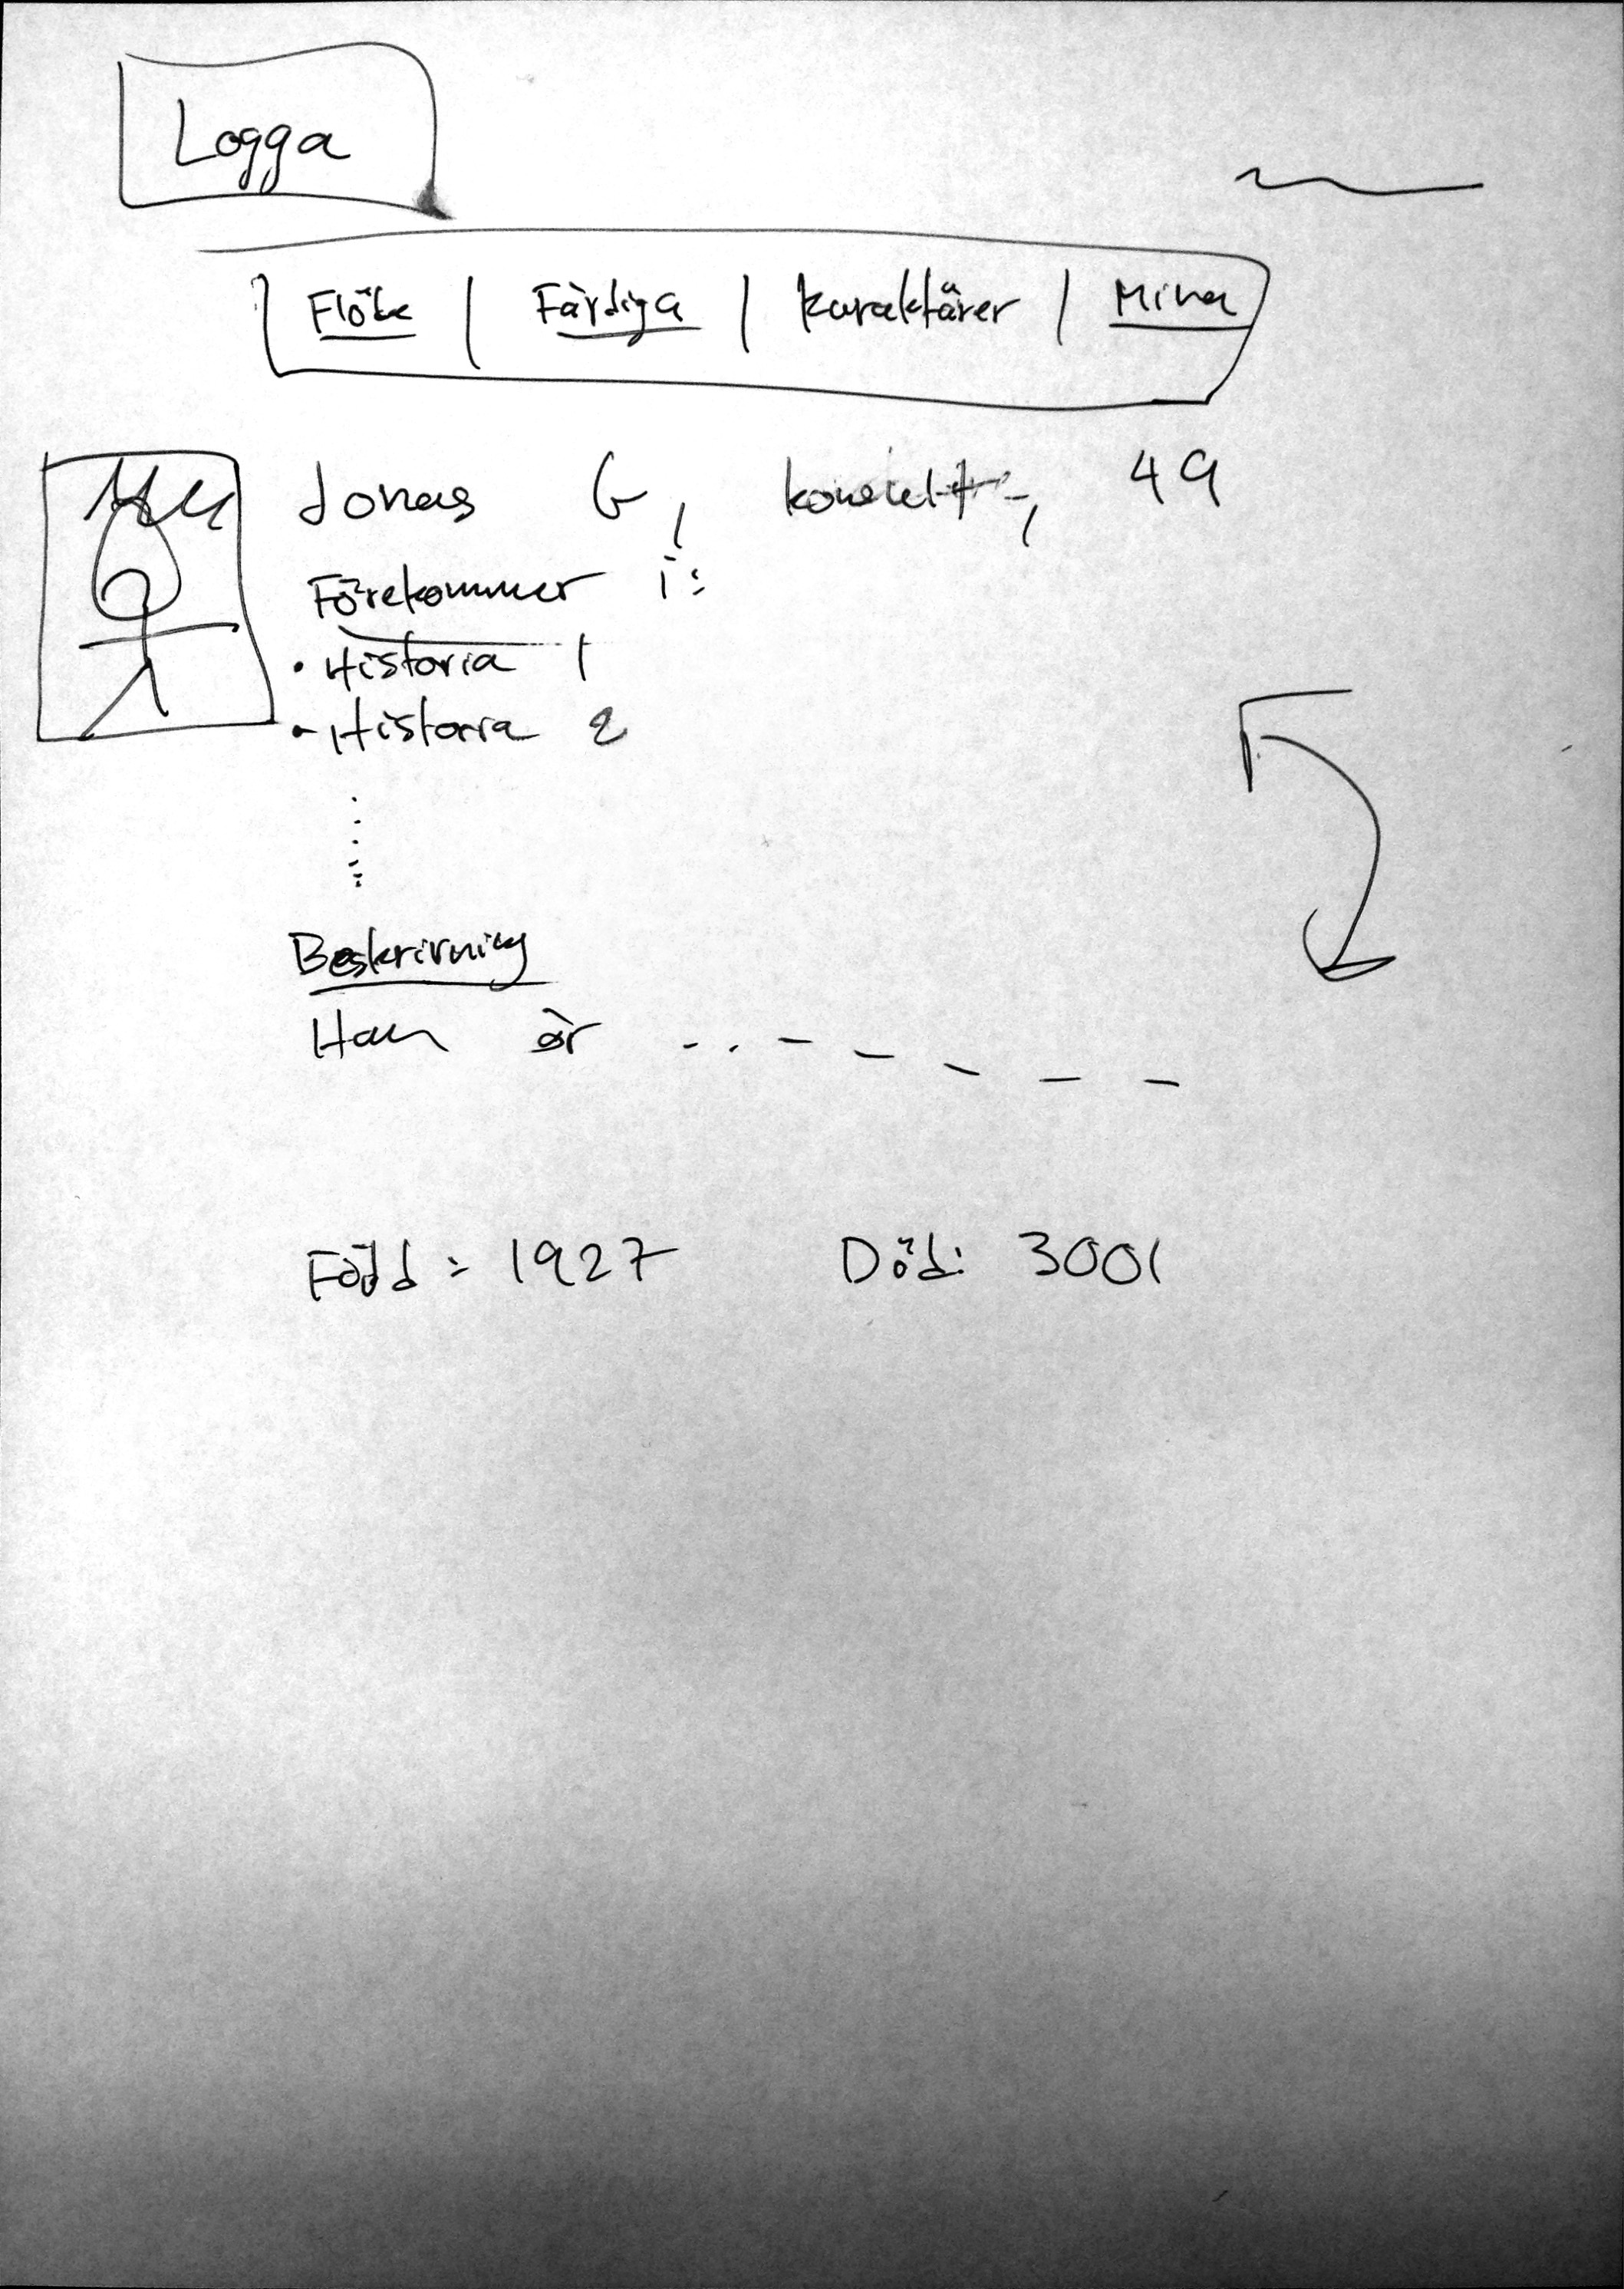 Logga
Flöde | Färdiga | Karaktärer | Mina
Jonas G, 49
Förekommer i:
• Historia 1
• Historia 2
Beskrivning
Han är ..
Född: 1927 Död: 3001